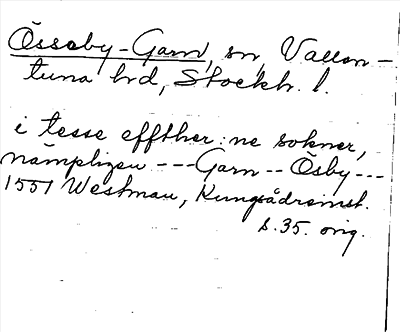 Össeby-Garn, sn, Vallen-
tuna hrd, Stockh. l.
i tesse effther:ne sokner,
nämpligen --- Garn -- Ösby ---
1551 Westman, Kungsådreinst.
s. 35. orig.